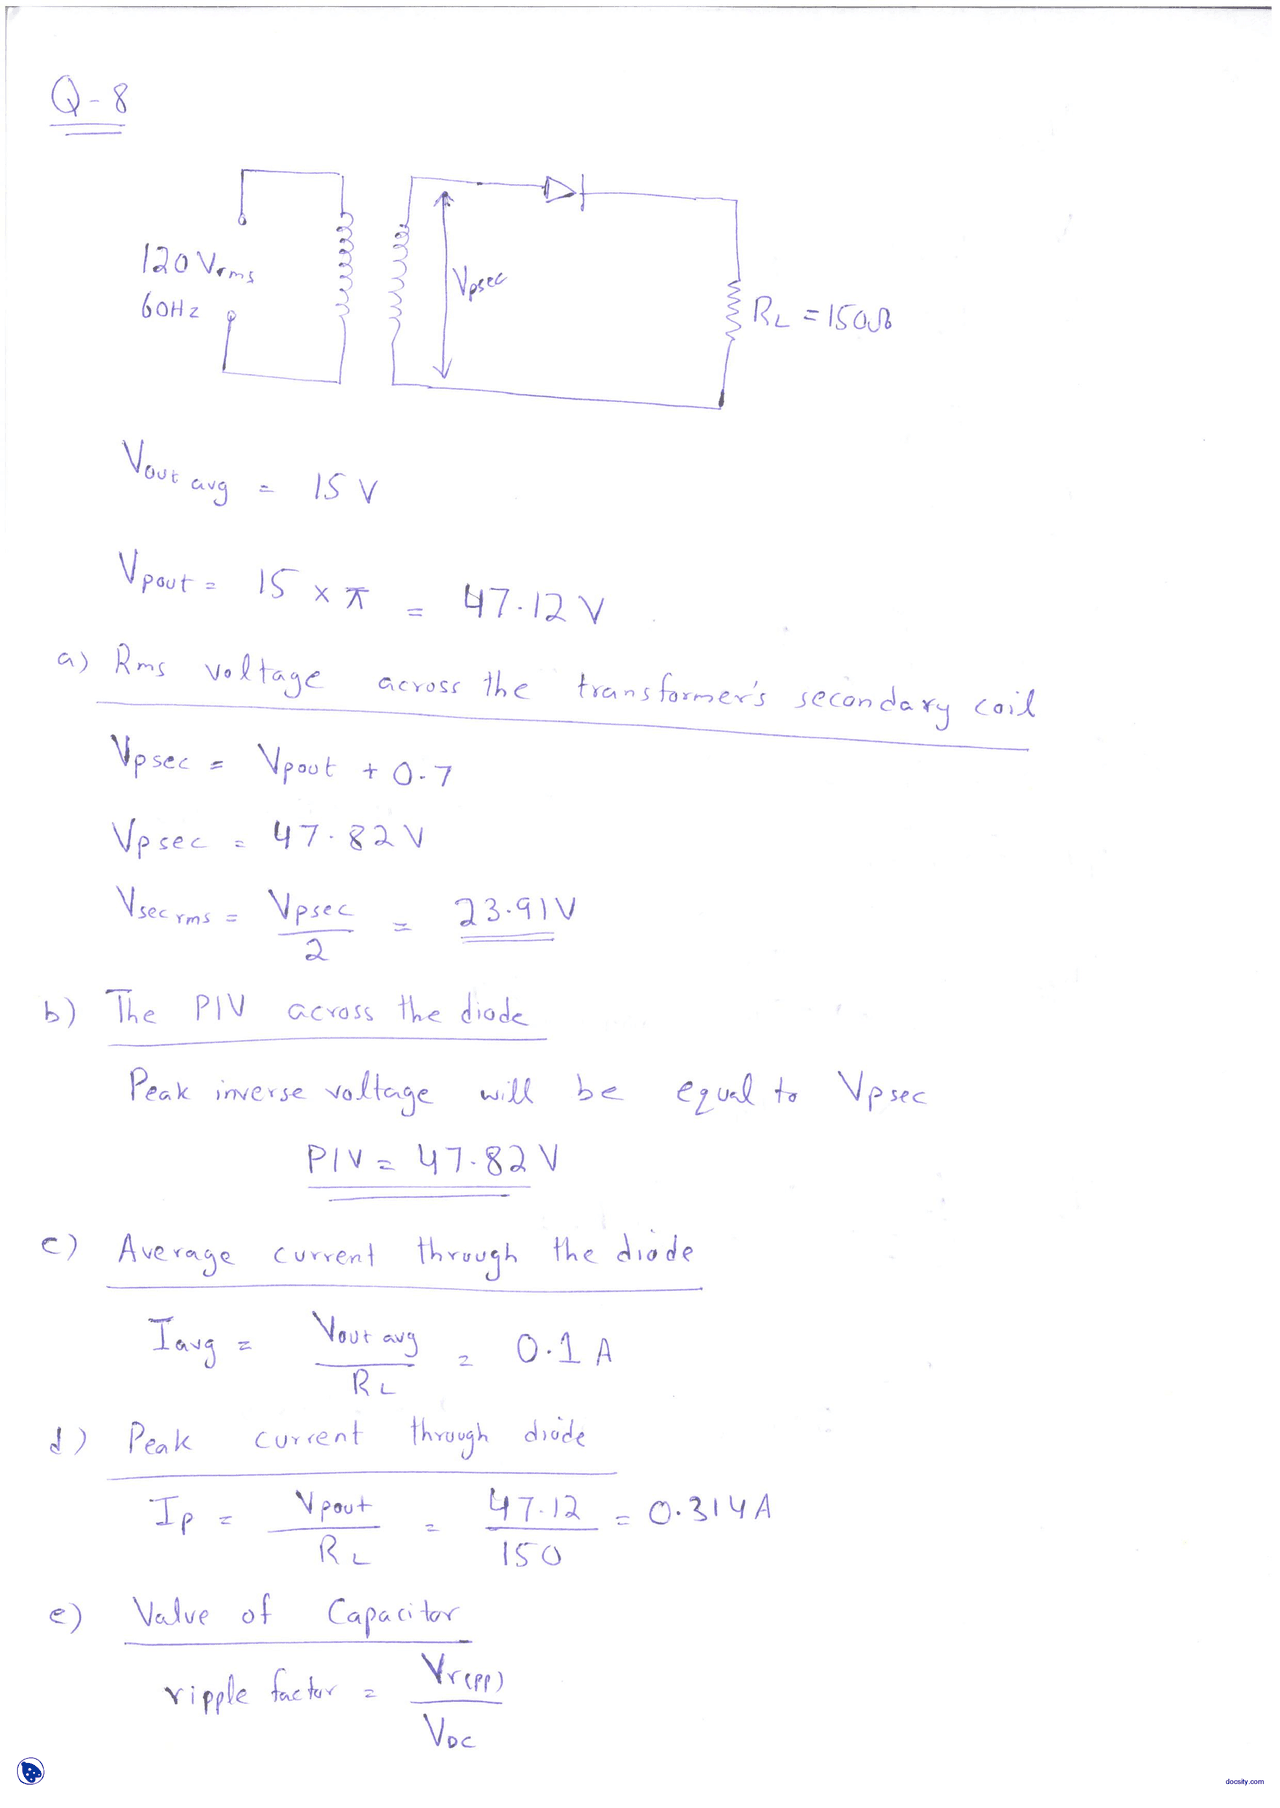 Q-8
120 Vrms
60Hz
Vpsec
RL = 150Ω
Vout avg = 15 V
Vpout = 15 × π = 47.12 V
a) Rms voltage across the transformer's secondary coil
Vpsec = Vpout + 0.7
Vpsec = 47.82 V
Vsec rms = Vpsec / 2 = 23.91V
b) The PIV across the diode
Peak inverse voltage will be equal to Vpsec
PIV = 47.82 V
c) Average current through the diode
Iavg = Vout avg / RL = 0.1 A
d) Peak current through diode
Ip = Vpout / RL = 47.12 / 150 = 0.314A
e) Value of Capacitor
ripple factor = Vr(pp) / VDC
docsity.com